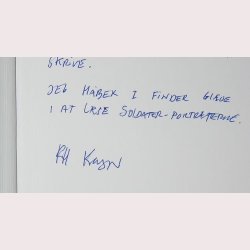 SKRIVE.
JEG HÅBER I FINDER GLÆDE
I AT LÆSE SOLDATER-PORTRÆTTERNE.